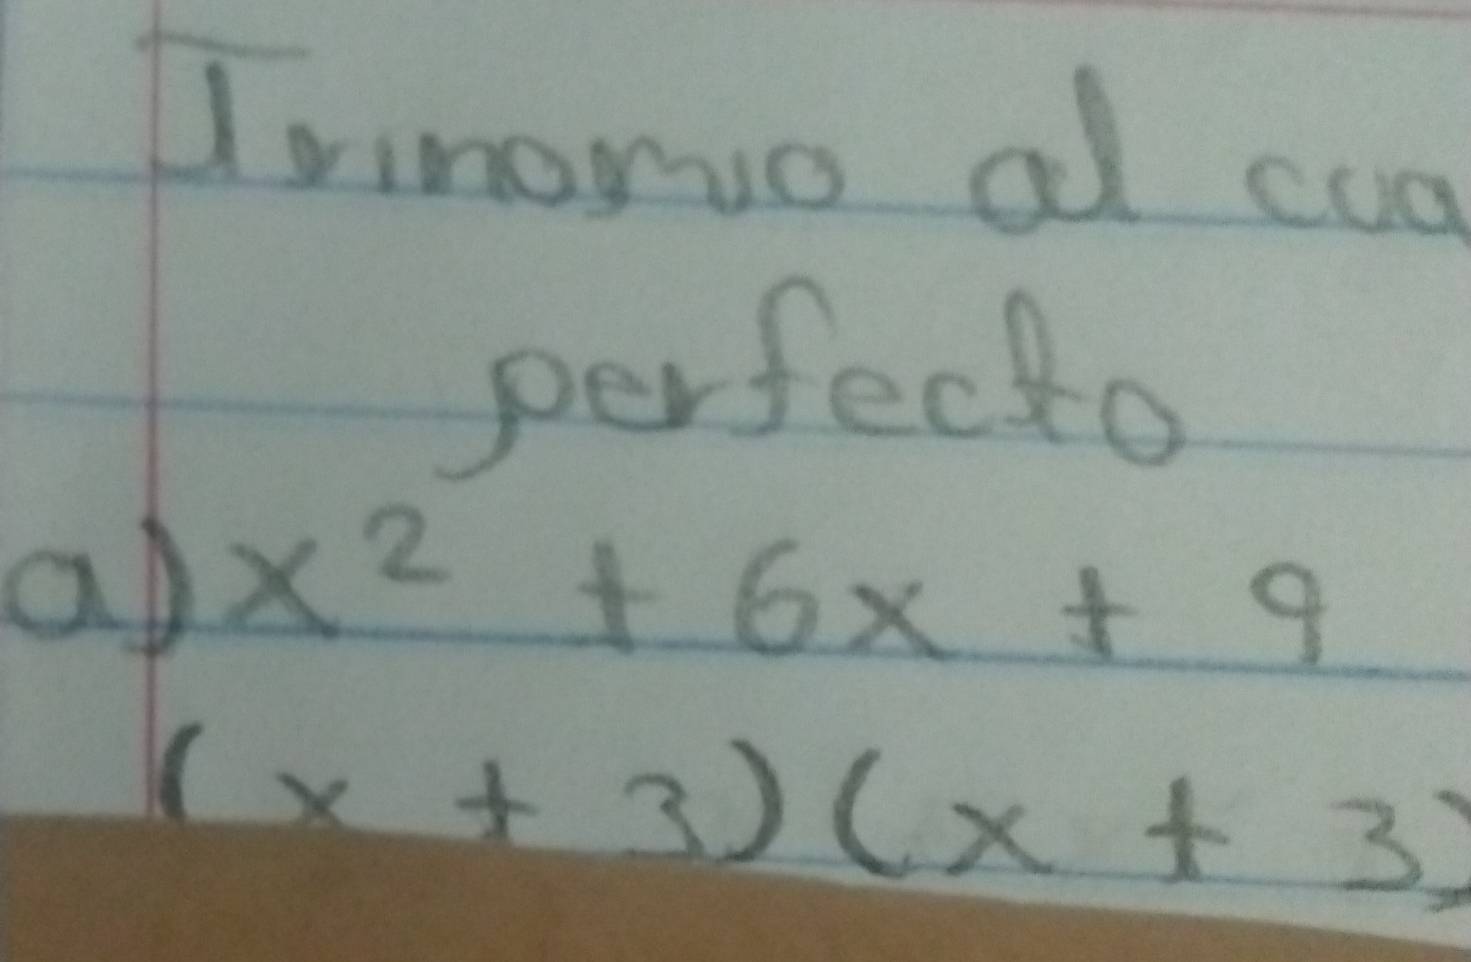 Trinomio al cua
perfecto
a) x² + 6x + 9
(x + 3)(x + 3)